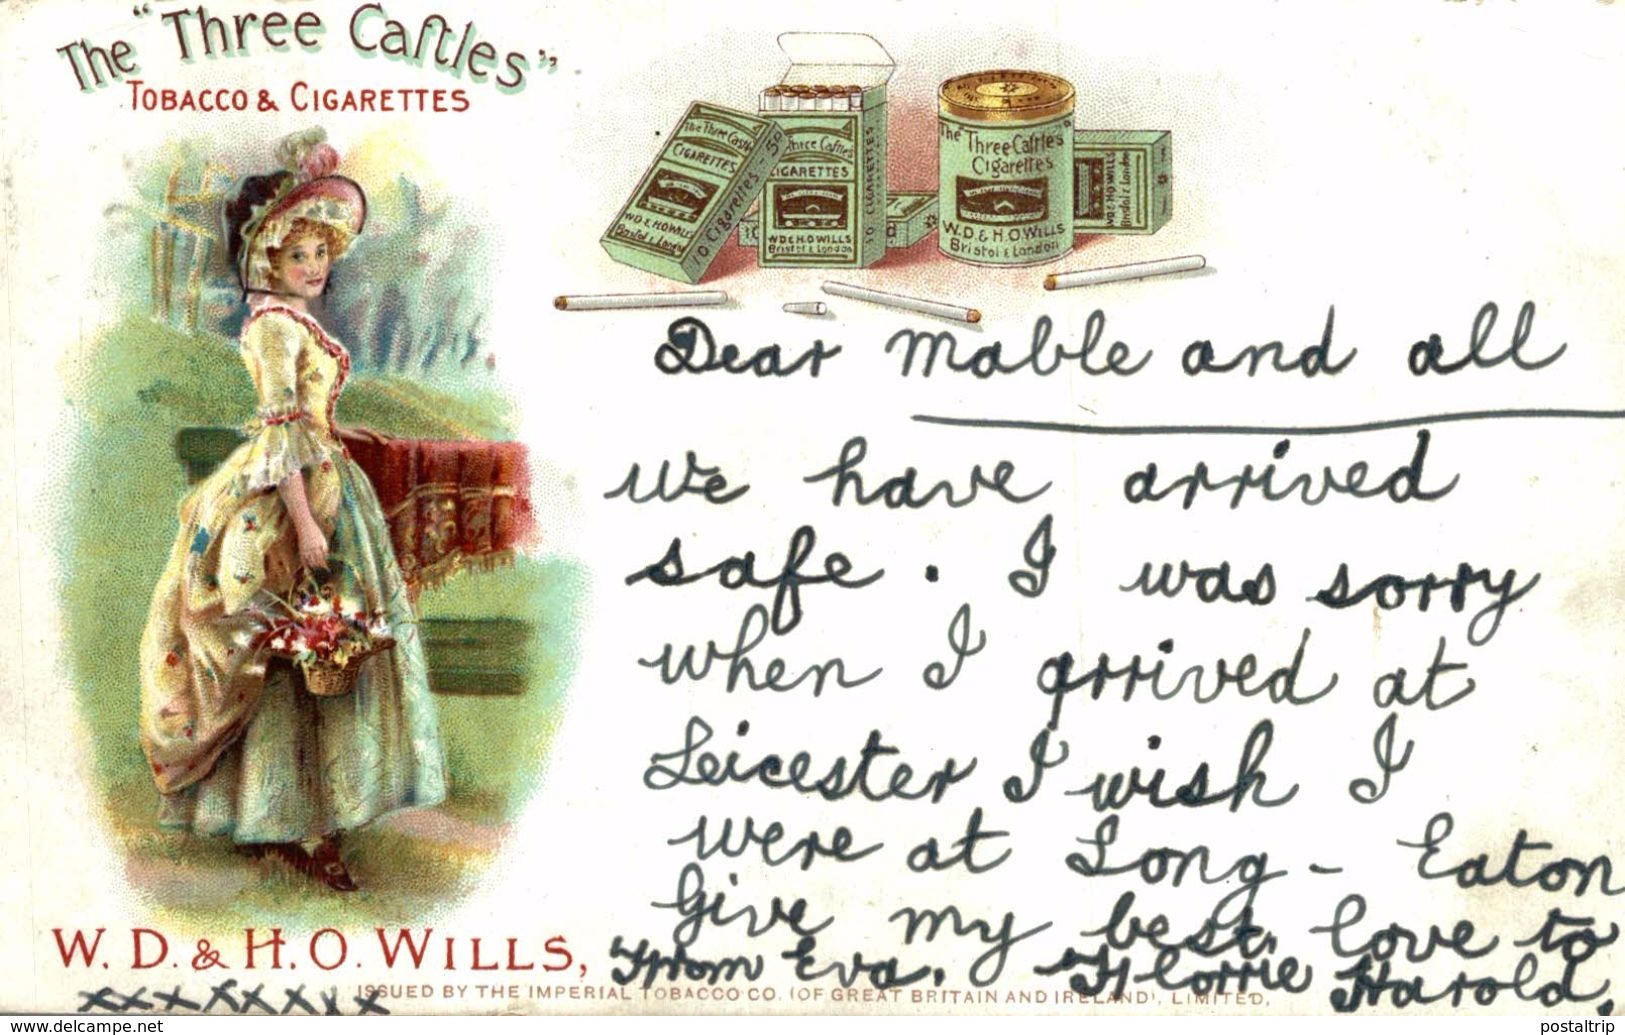 The "Three Castles"
TOBACCO & CIGARETTES
The Three Castles
CIGARETTES
W.D & H.O WILLS
Bristol & London
10 Cigarettes - 5D
Three Castles
CIGARETTES
W.D & H.O WILLS
Bristol & London
10 CIGARETTES
The Three Castles
Cigarettes
W.D. & H.O WILLS
Bristol & London
W.D & H.O WILLS
Bristol & London
Dear Mable and all
We have arrived
safe. I was sorry
when I arrived at
Leicester I wish I
were at Long - Eaton
Give my best love to
From Eva. Florrie Harold.
W. D. & H. O. WILLS,
xxxxxxxx
ISSUED BY THE IMPERIAL TOBACCO CO. (OF GREAT BRITAIN AND IRELAND), LIMITED.
www.delcampe.net
postaltrip